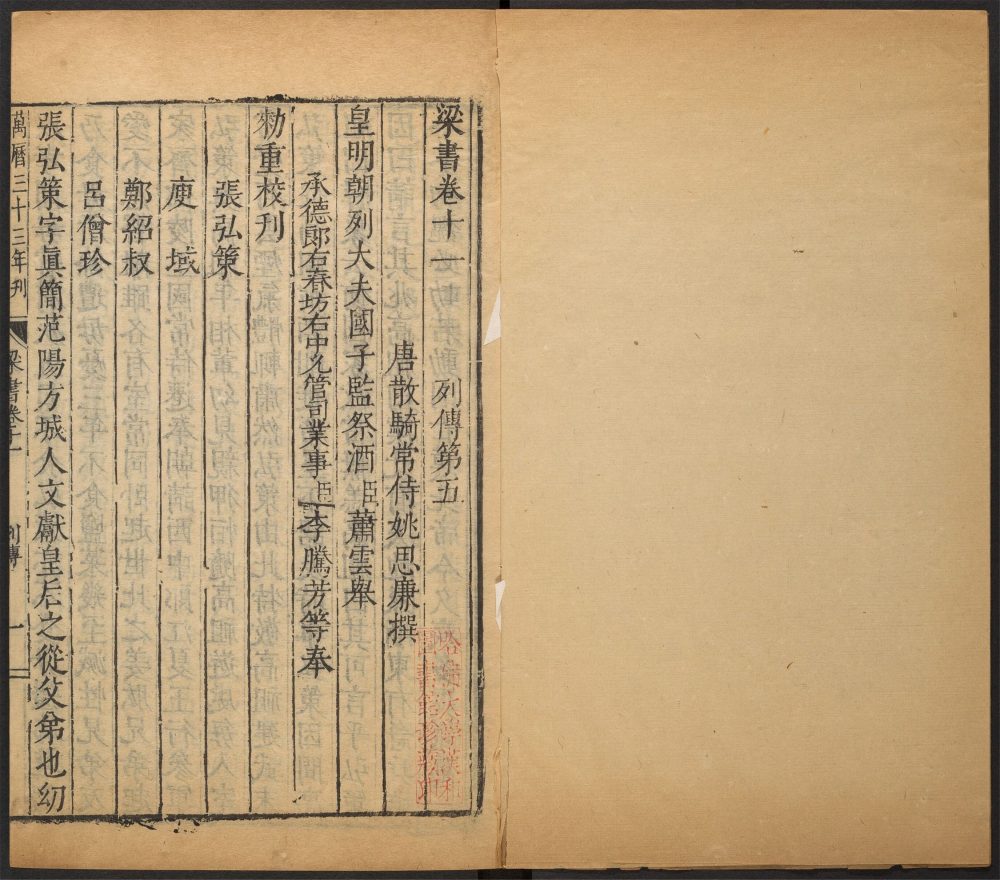 梁書卷十一 列傳第五
唐散騎常侍姚思廉撰
皇明朝列大夫國子監祭酒臣蕭雲舉
承德郎右春坊右中允管司業事臣李騰芳等奉
勑重校刊
張弘策
庾域
鄭紹叔
呂僧珍
張弘策字眞簡范陽方城人文獻皇后之從父弟也幼
萬曆三十三年刊 梁書卷十一 列傳 一
哈佛大學漢和
圖書館珍藏印